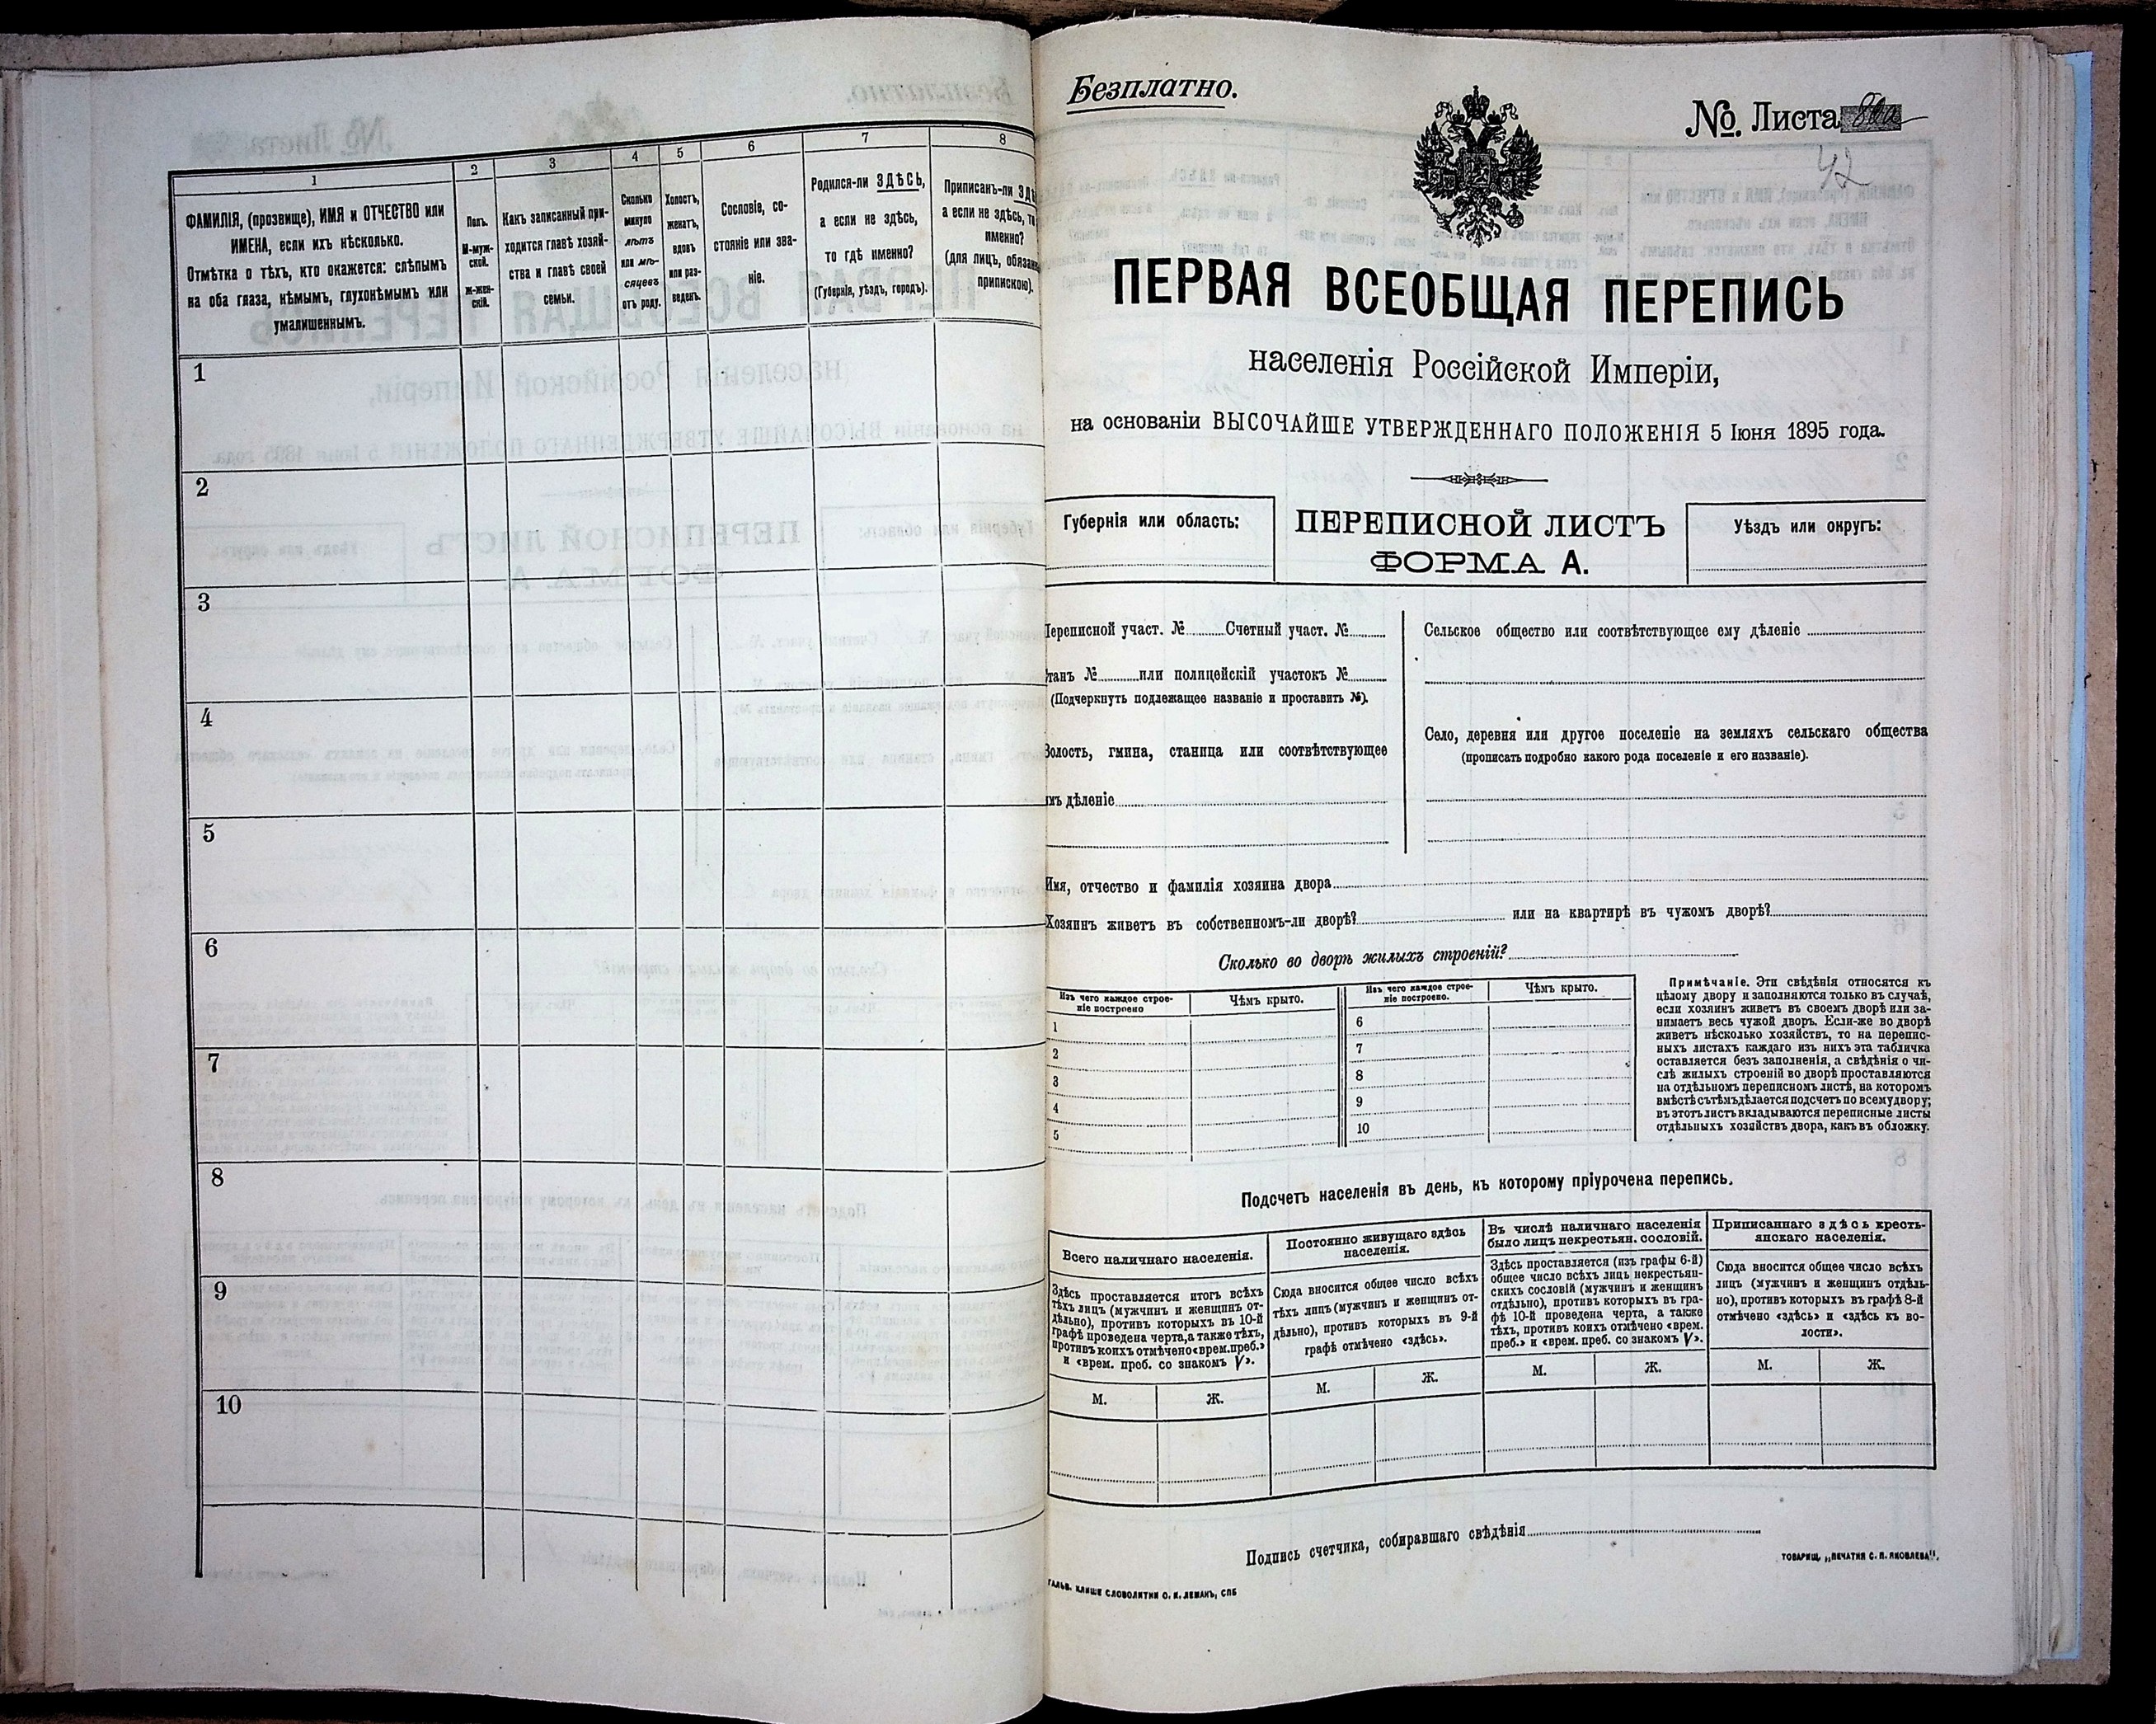 1
2
3
4
5
6
7
8
ФАМИЛІЯ, (прозвище), ИМЯ и ОТЧЕСТВО или
ИМЕНА, если ихъ нѣсколько.
Отмѣтка о тѣхъ, кто окажется: слѣпымъ
на оба глаза, нѣмымъ, глухонѣмымъ или
умалишеннымъ.
Полъ.
М-муж-
ской.
ж-жен-
скій.
Какъ записанный при-
ходится главѣ хозяй-
ства и главѣ своей
семьи.
Сколько
минуло
лѣтъ
или мѣ-
сяцевъ
отъ роду.
Холостъ,
женатъ,
вдовъ
или раз-
веденъ.
Сословіе, со-
стояніе или зва-
ніе.
Родился-ли ЗДѢСЬ,
а если не здѣсь,
то гдѣ именно?
(Губернія, уѣздъ, городъ).
Приписанъ-ли ЗДѢ
а если не здѣсь, то
именно?
(для лицъ, обязан
припискою).
1
2
3
4
5
6
7
8
9
10
Безплатно.
№ Листа
42
ПЕРВАЯ ВСЕОБЩАЯ ПЕРЕПИСЬ
населенія Россійской Имперіи,
на основаніи ВЫСОЧАЙШЕ УТВЕРЖДЕННАГО ПОЛОЖЕНІЯ 5 Іюня 1895 года.
Губернія или область:
ПЕРЕПИСНОЙ ЛИСТЪ
ФОРМА А.
Уѣздъ или округъ:
Переписной участ. № Счетный участ. №
танъ № или полицейскій участокъ №
(Подчеркнуть подлежащее названіе и проставить №).
Волость, гмина, станица или соотвѣтствующее
имъ дѣленіе
Сельское общество или соотвѣтствующее ему дѣленіе
Село, деревня или другое поселеніе на земляхъ сельскаго общества
(прописать подробно какого рода поселеніе и его названіе).
Имя, отчество и фамилія хозяина двора
Хозяинъ живетъ въ собственномъ-ли дворѣ? или на квартирѣ въ чужомъ дворѣ?
Сколько во дворѣ жилыхъ строеній?
Изъ чего каждое строе-
ніе построено
Чѣмъ крыто.
Изъ чего каждое строе-
ніе построено.
Чѣмъ крыто.
1
2
3
4
5
6
7
8
9
10
Примѣчаніе. Эти свѣдѣнія относятся къ
цѣлому двору и заполняются только въ случаѣ,
если хозяинъ живетъ въ своемъ дворѣ или за-
нимаетъ весь чужой дворъ. Если-же во дворѣ
живетъ нѣсколько хозяйствъ, то на перепис-
ныхъ листахъ каждаго изъ нихъ эта табличка
оставляется безъ заполненія, а свѣдѣнія о чи-
слѣ жилыхъ строеній во дворѣ проставляются
на отдѣльномъ переписномъ листѣ, на которомъ
вмѣстѣ съ тѣмъ дѣлается подсчетъ по всему двору;
въ этотъ листъ вкладываются переписные листы
отдѣльныхъ хозяйствъ двора, какъ въ обложку.
Подсчетъ населенія въ день, къ которому пріурочена перепись.
Всего наличнаго населенія.
Здѣсь проставляется итогъ всѣхъ
тѣхъ лицъ (мужчинъ и женщинъ от-
дѣльно), противъ которыхъ въ 10-й
графѣ проведена черта, а также тѣхъ,
противъ коихъ отмѣчено «врем. преб.»
и «врем. преб. со знакомъ V».
М.
Ж.
Постоянно живущаго здѣсь
населенія.
Сюда вносится общее число всѣхъ
тѣхъ лицъ (мужчинъ и женщинъ от-
дѣльно), противъ которыхъ въ 9-й
графѣ отмѣчено «здѣсь».
М.
Ж.
Въ числѣ наличнаго населенія
было лицъ некрестьян. сословій.
Здѣсь проставляется (изъ графы 6-й)
общее число всѣхъ лицъ некрестьян-
скихъ сословій (мужчинъ и женщинъ
отдѣльно), противъ которыхъ въ гра-
фѣ 10-й проведена черта, а также
тѣхъ, противъ коихъ отмѣчено «врем.
преб.» и «врем. преб. со знакомъ V».
М.
Ж.
Приписаннаго здѣсь кресть-
янскаго населенія.
Сюда вносится общее число всѣхъ
лицъ (мужчинъ и женщинъ отдѣль-
но), противъ которыхъ въ графѣ 8-й
отмѣчено «здѣсь» и «здѣсь къ во-
лости».
М.
Ж.
Подпись счетчика, собиравшаго свѣдѣнія
ТОВАРИЩ. „ПЕЧАТНЯ С. П. ЯКОВЛЕВА".
ГАЛЬВ. КЛИШЕ СЛОВОЛИТНИ О. И. ЛЕМАНЪ, СПБ